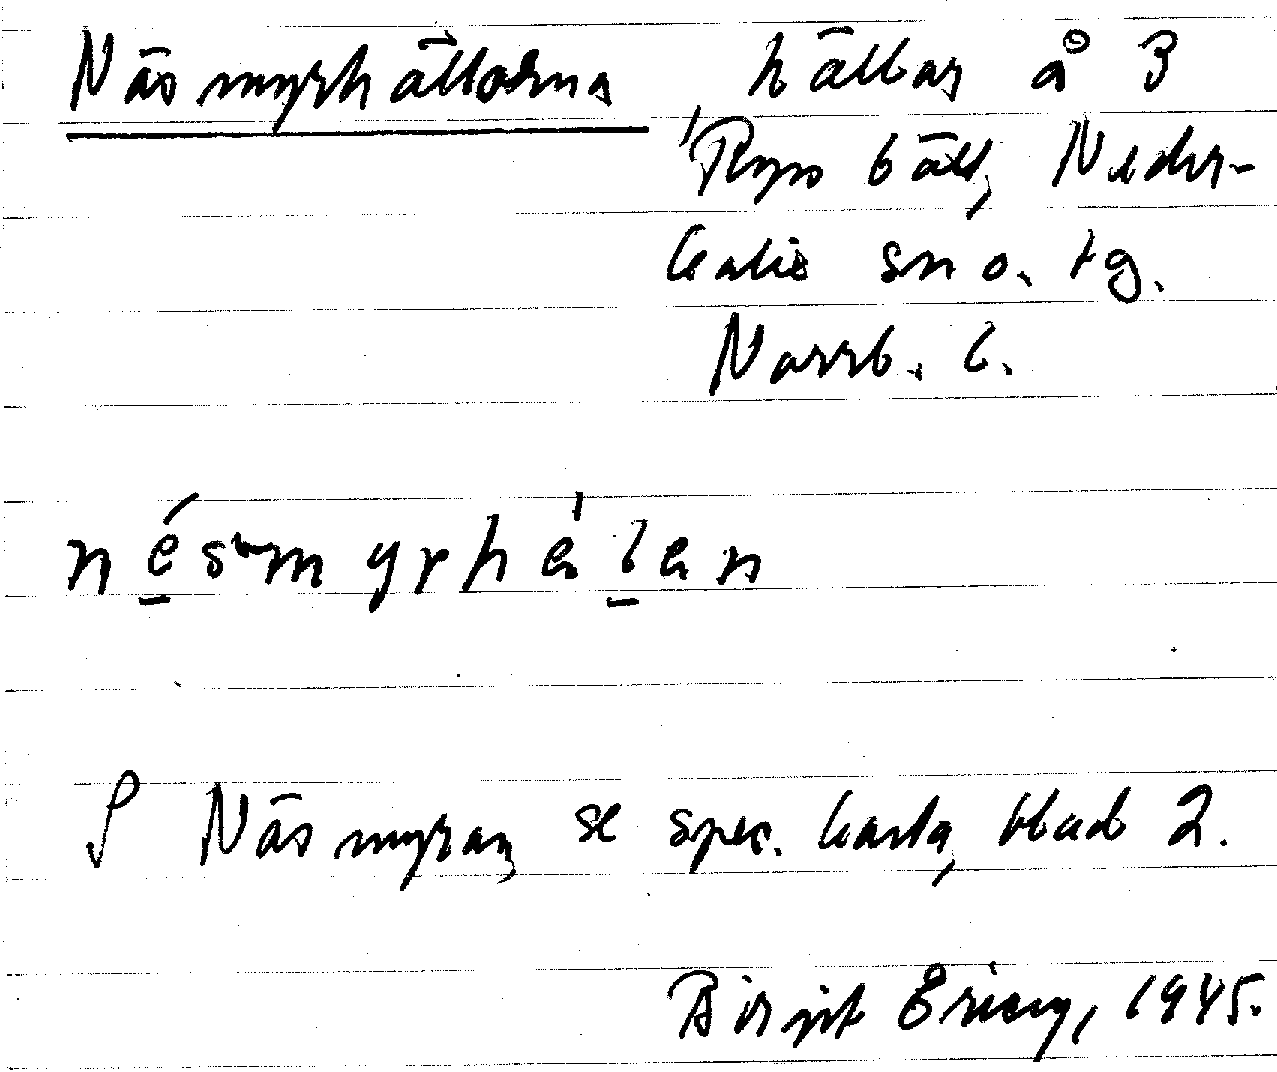 Näsmyrhällorna hällar å 3
Ryssbält, Neder-
kalix sn o. tg.
Norrb. l.
nésmyrhälan
Näsmyran, se spec. karta, blad 2.
Birgit Ericz, 1945.